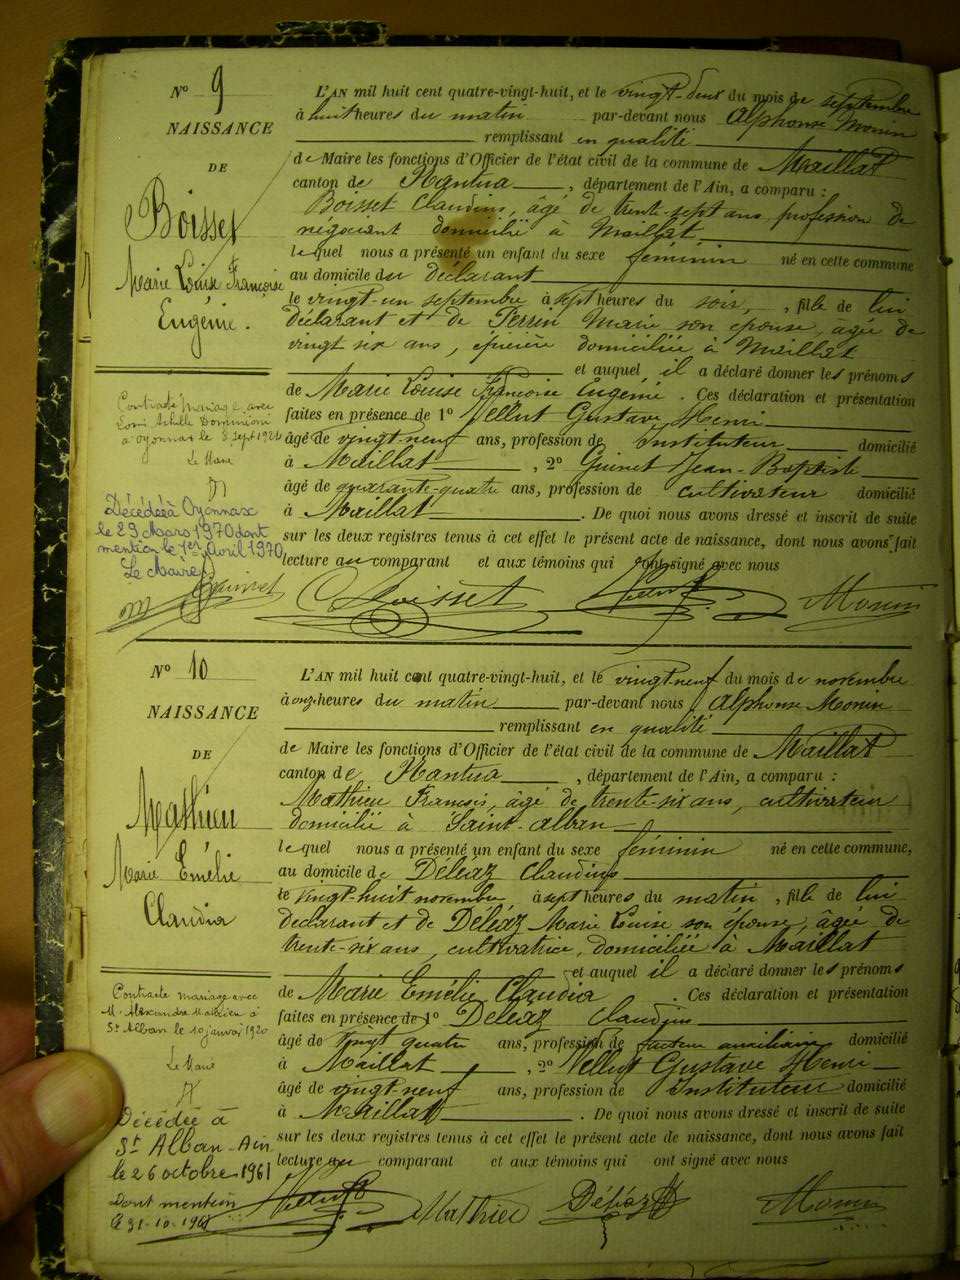 N° 9
NAISSANCE
DE
Boisset
Marie Louise Françoise
Eugénie.
Contracte mariage avec
Achille Dominioni
à Oyonnax le 8 sept 1921
Le Maire
Décédée à Oyonnax
le 29 Mars 1970 dont
mention le 1er Avril 1970
Le Maire
L'AN mil huit cent quatre-vingt-huit, et le vingt-deux du mois de septembre
à huit heures du matin par-devant nous Alphonse Monin
remplissant en qualité
de Maire les fonctions d'Officier de l'état civil de la commune de Maillat
canton de Nantua, département de l'Ain, a comparu :
Boisset Claudius, âgé de trente-sept ans, profession de
négociant domicilié à Maillat
lequel nous a présenté un enfant du sexe féminin né en cette commune
au domicile du déclarant
le vingt-un septembre à sept heures du soir, , fille de lui
déclarant et de Perrin Marie son épouse, âgée de
vingt six ans, épicière domiciliée à Maillat
et auquel il a déclaré donner les prénoms
de Marie Louise Françoise Eugénie. Ces déclaration et présentation
faites en présence de 1° Vellut Gustave Henri
âgé de vingt-neuf ans, profession de Instituteur domicilié
à Maillat, 2° Guinet Jean-Baptiste
âgé de quarante-quatre ans, profession de cultivateur domicilié
à Maillat. De quoi nous avons dressé et inscrit de suite
sur les deux registres tenus à cet effet le présent acte de naissance, dont nous avons fait
lecture au comparant et aux témoins qui ont signé avec nous
Guinet Boisset Vellut Monin
N° 10
NAISSANCE
DE
Mathieu
Marie Emélie
Claudia
Contracte mariage avec
M. Alexandre Mathieu à
St Alban le 10 janvier 1920
Le Maire
Décédée à
St Alban-Ain
le 26 octobre 1961
Dont mention
le 31-10-1961
L'AN mil huit cent quatre-vingt-huit, et le vingt neuf du mois de novembre
à onze heures du matin par-devant nous Alphonse Monin
remplissant en qualité
de Maire les fonctions d'Officier de l'état civil de la commune de Maillat
canton de Nantua, département de l'Ain, a comparu :
Mathieu François, âgé de trente-six ans, cultivateur
domicilié à Saint-Alban
lequel nous a présenté un enfant du sexe féminin né en cette commune,
au domicile de Déléaz Claudius
le vingt-huit novembre à sept heures du matin, fille de lui
déclarant et de Déléaz Marie Louise son épouse, âgée de
trente-six ans, cultivatrice, domiciliée à Maillat
et auquel il a déclaré donner les prénoms
de Marie Emélie Claudia. Ces déclaration et présentation
faites en présence de 1° Déléaz Claudius
âgé de vingt quatre ans, profession de facteur auxiliaire domicilié
à Maillat, 2° Vellut Gustave Henri
âgé de vingt neuf ans, profession de Instituteur domicilié
à Maillat. De quoi nous avons dressé et inscrit de suite
sur les deux registres tenus à cet effet le présent acte de naissance, dont nous avons fait
lecture au comparant et aux témoins qui ont signé avec nous
Vellut Mathieu Déléaz Monin